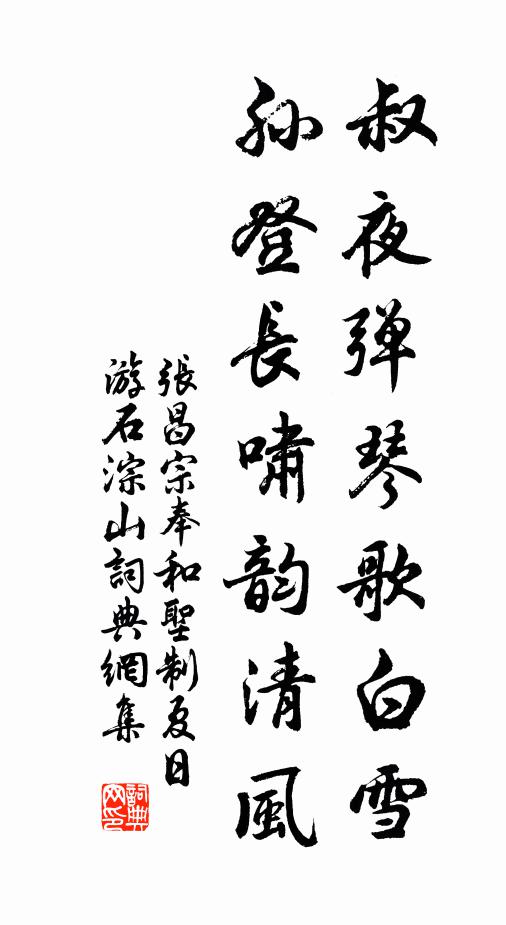 叔夜弹琴歌白雪
孙登長嘯韵清風
張昌宗奉和聖制夏日
游石淙山詞典網集
詞典網印